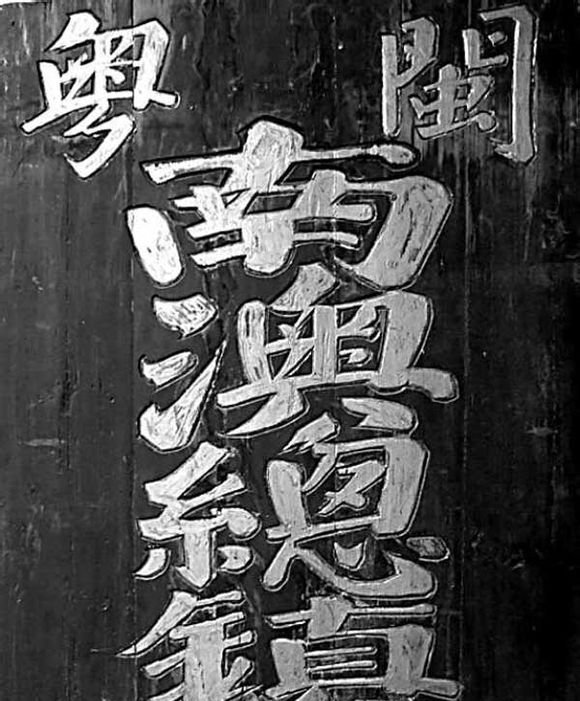 閩粵
南澳總鎮